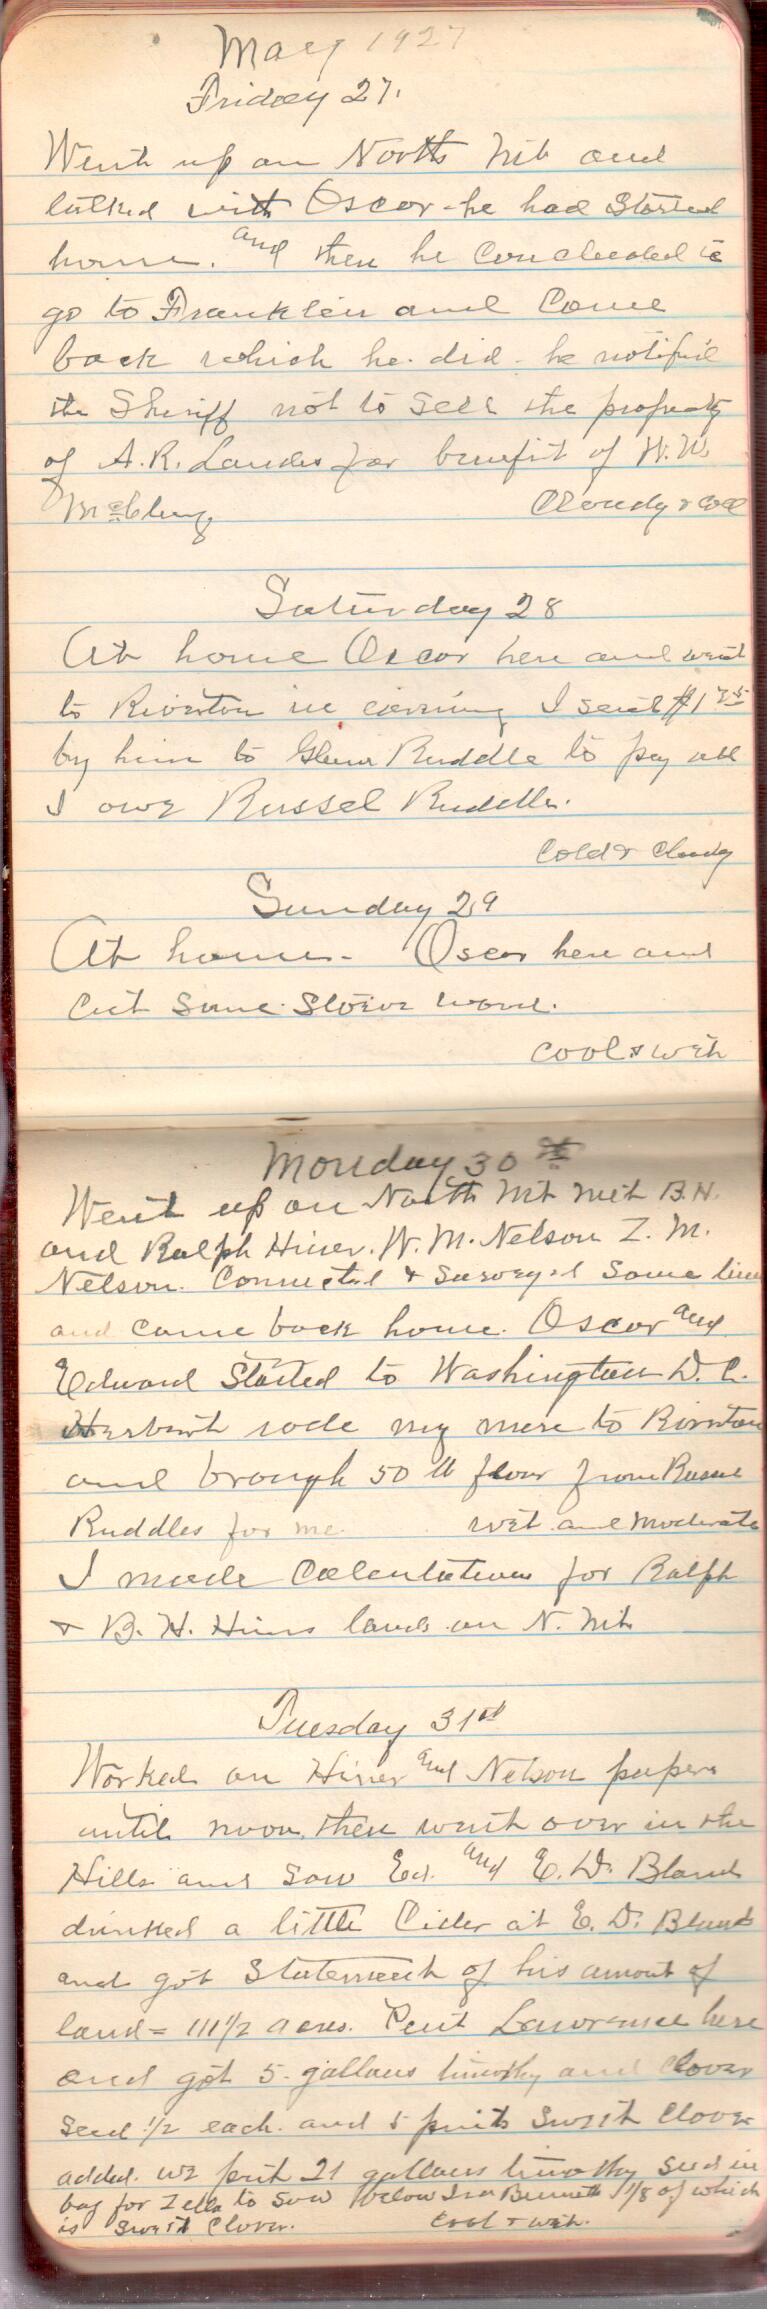 May 1927
Friday 27.
Went up on North Mt and
talked with Oscar - he had started
home. and then he concluded to
go to Franklin and come
back which he did - he notified
the Sheriff not to sell the property
of A. R. Landes for benefit of W. W.
McClung Cloudy & cool
Saturday 28
At home Oscar here and went
to Riverton in evening I sent $1 75
by him to Glenn Ruddle to pay all
I owe Russel Ruddle.
Cold & Cloudy
Sunday 29
At home - Oscar here and
cut some stove wood.
Cool & wet
Monday 30th
Went up on North Mt met B. H.
and Ralph Hiner. W. M. Nelson Z. M.
Nelson. Connected & surveyed some line
and came back home. Oscar and
Edward Started to Washington D. C.
Herbert rode my mare to Riverton
and brough 50 lb flour from Russel
Ruddles for me. wet and moderate
I made Calculations for Ralph
& B. H. Hiners lands on N. Mt.
Tuesday 31st
Worked on Hiner and Nelson papers
until noon, then went over in the
Hills and saw Ed. and E. D. Bland
drinked a little Cider at E. D. Blands
and got statement of his amout of
land = 111 1/2 acres. Lawrence here
and got 5 gallons timothy and clover
seed 1/2 each. and 5 pints Sweet Clover
added. we put 21 gallons timothy seed in
bag for Zella to sow below Ira Bennett 1/8 of which
is sweet Clover. Cool & wet.